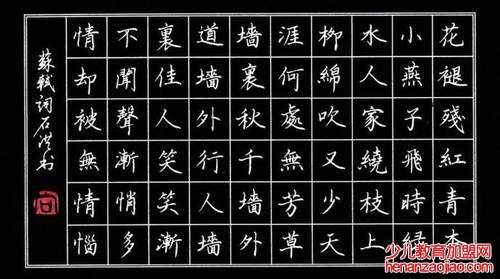 花褪殘紅青杏
小燕子飛時綠
水人家繞枝上
柳綿吹又少天
涯何處無芳草
墻裏秋千墻外
道墻外行人墻
裏佳人笑笑漸
不聞聲漸悄多
情却被無情惱
蘇軾詞石洪书
少儿教育加盟网